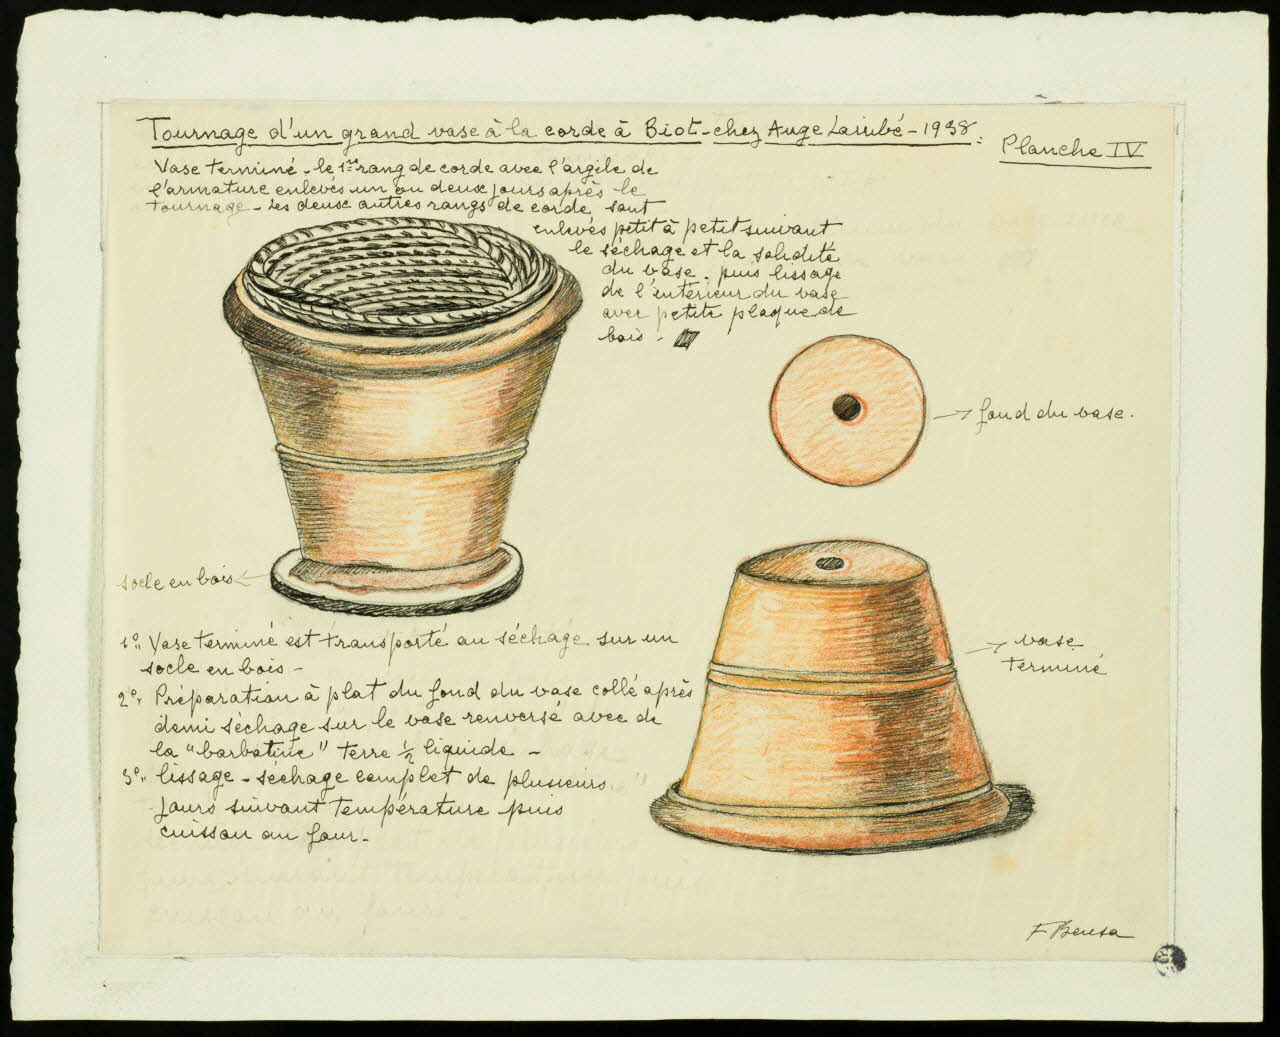 Tournage d'un grand vase à la corde à Biot - chez Auge Laiubé - 1938 :
Planche IV
Vase terminé - le 1er rang de corde avec l'argile de
l'armature enlevés un ou deux jours après le
tournage - les deux autres rangs de corde sont
enlevés petit à petit suivant
le séchage et la solidité
du vase. puis lissage
de l'intérieur du vase
avec petite plaque de
bois -
fond du vase.
socle en bois
vase
terminé
1° Vase terminé est transporté au séchage sur un
socle en bois -
2° Préparation à plat du fond du vase collé après
demi séchage sur le vase renversé avec de
la "barbotine" terre ½ liquide -
3° lissage - séchage complet de plusieurs
jours suivant température puis
cuisson au four -
F Bensa